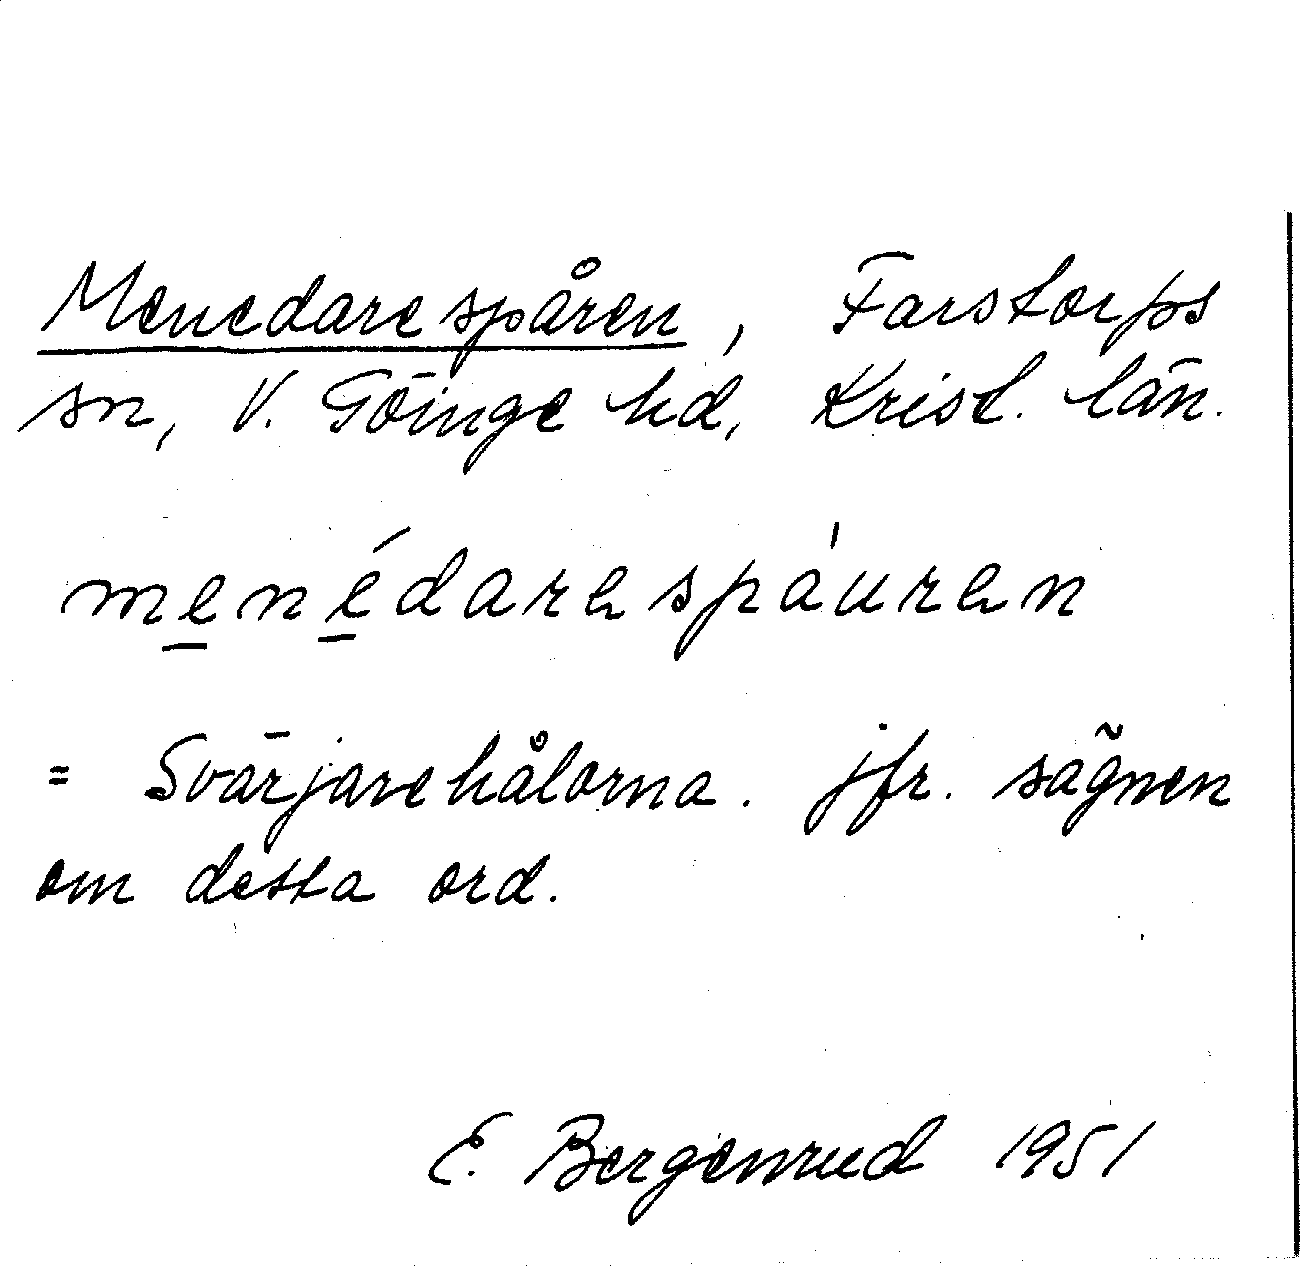 Menedarespåren, Farstorps
sn, V. Göinge hd, Krist. län.
menédarespáuren
= Svärjarehålorna. jfr. sägnen
om detta ord.
E. Bergenrud 1951